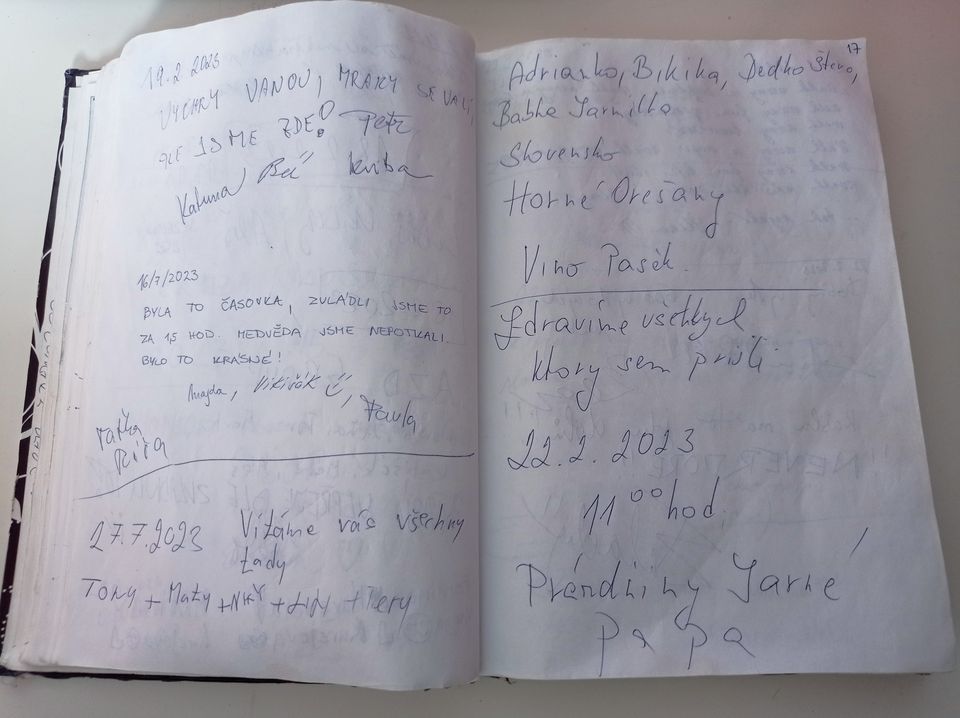 19.2.2023
VÝCHRY VANOU, MRAKY SE VALÍ,
ALE JSME ZDE! Petr
Katuna
16/7/2023
BYLA TO ČASOVKA, ZVLÁDLI JSME TO
ZA 1,5 HOD. MEDVĚDA JSME NEPOTKALI.
BYLO TO KRÁSNÉ!
Majda, Pavla
27.7.2023 Vítáme vás všechny
tady
Tony + Maty + + + Tery
17
Adrianko, Bikika, Dedko Števo,
Babka Jarmilka
Slovensko
Horné Orešany
Vino Pasék.
Zdravíme všetkych
ktorý sem prišli
22.2.2023
11 00 hod
Prázdniny Jarné
pa pa